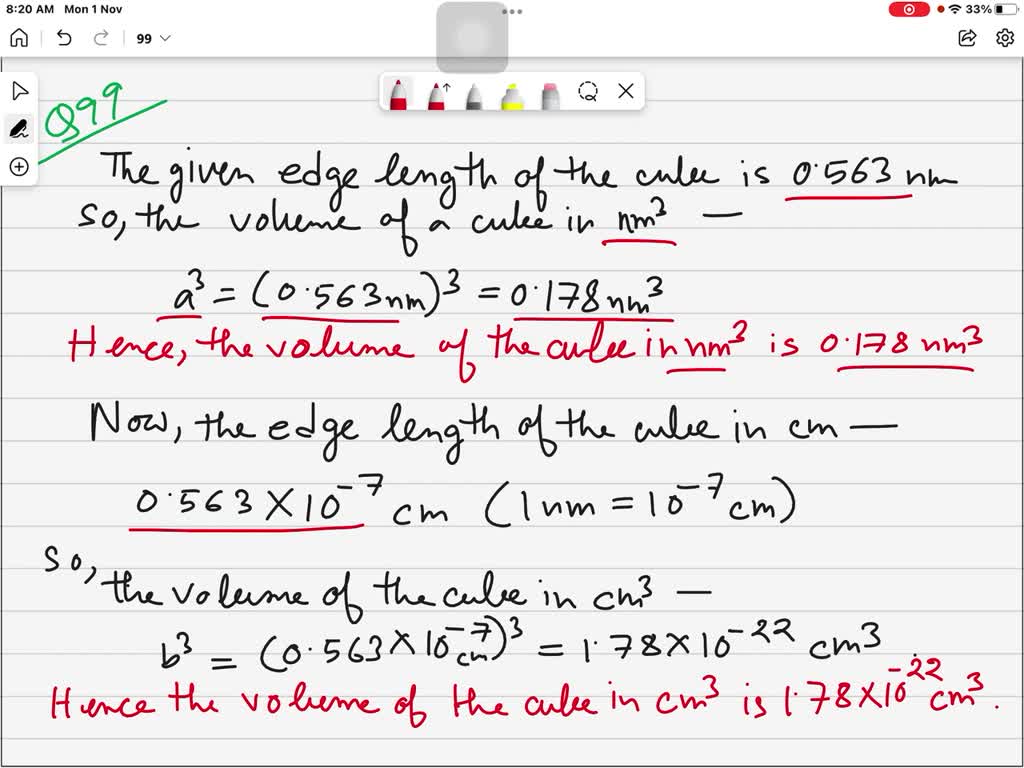 8:20 AM Mon 1 Nov 33%
99
Q99
The given edge length of the cube is 0.563 nm
So, the volume of a cube in nm³ —
a³ = (0.563 nm)³ = 0.178 nm³
Hence, the volume of the cube in nm³ is 0.178 nm³
Now, the edge length of the cube in cm —
0.563 × 10⁻⁷ cm (1 nm = 10⁻⁷ cm)
So, the volume of the cube in cm³ —
b³ = (0.563 × 10⁻⁷ cm)³ = 1.78 × 10⁻²² cm3
Hence the volume of the cube in cm³ is 1.78 × 10⁻²² cm³.